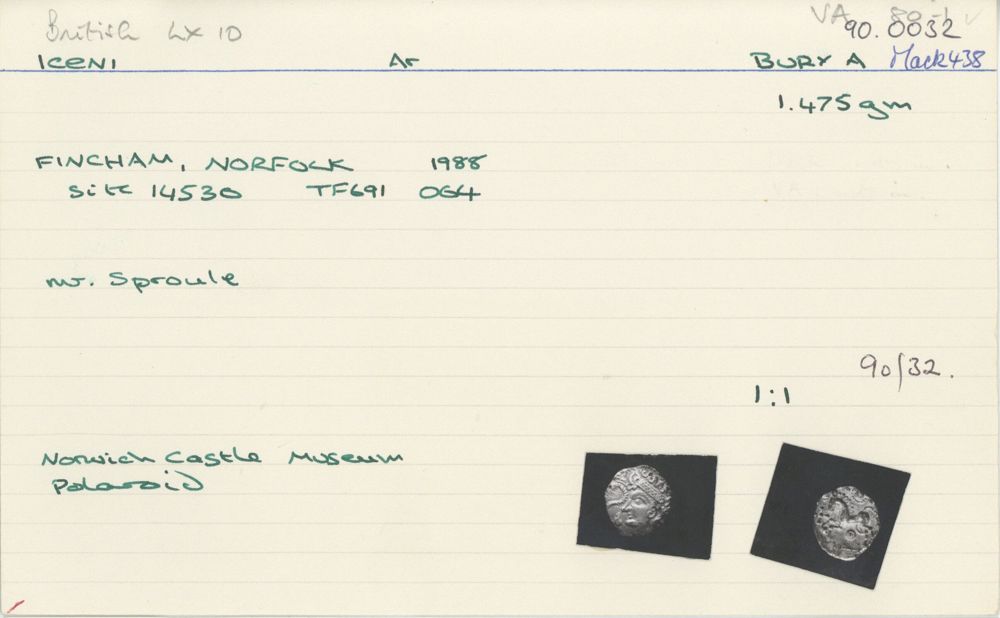 British Lx 10 VA 80-1 v
90.0032
ICENI Ar BURY A Mack 438
1.475gm
FINCHAM, NORFOLK 1988
Site 14530 TF691 064
mr. Sproule
90/32.
1:1
Norwich Castle Museum
Polaroid